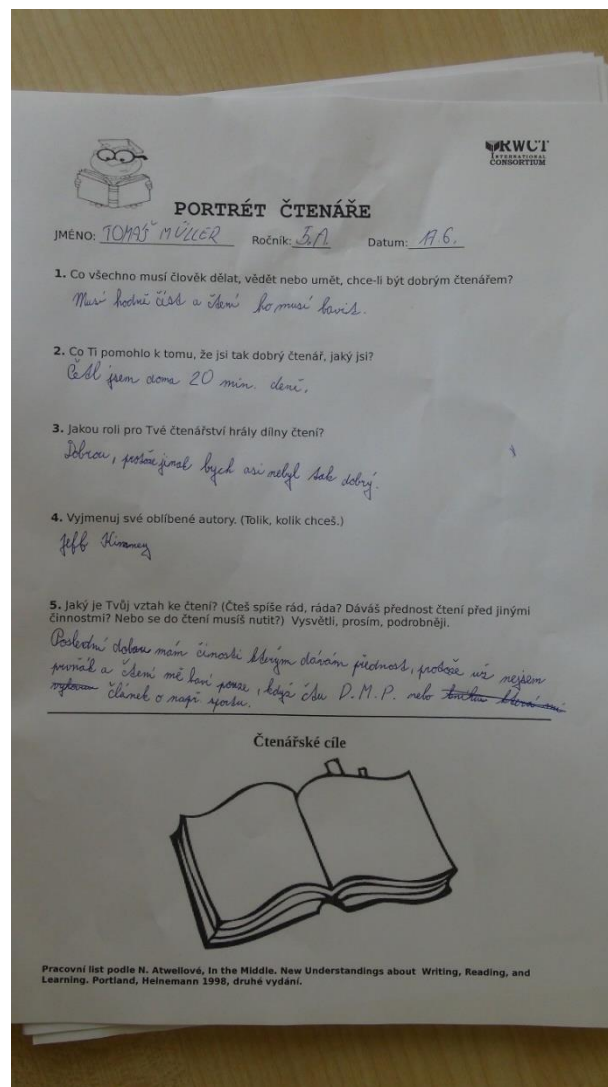 RWCT
INTERNATIONAL
CONSORTIUM
PORTRÉT ČTENÁŘE
JMÉNO: TOMÁŠ MÜLLER Ročník: 5.A. Datum: 17.6.
1. Co všechno musí člověk dělat, vědět nebo umět, chce-li být dobrým čtenářem?
Musí hodně číst a čtení ho musí bavit.
2. Co Ti pomohlo k tomu, že jsi tak dobrý čtenář, jaký jsi?
Četl jsem doma 20 min. deně.
3. Jakou roli pro Tvé čtenářství hrály dílny čtení?
Dobrou, protože jinak bych asi nebyl tak dobrý.
4. Vyjmenuj své oblíbené autory. (Tolik, kolik chceš.)
Jeff Kinney
5. Jaký je Tvůj vztah ke čtení? (Čteš spíše rád, ráda? Dáváš přednost čtení před jinými
činnostmi? Nebo se do čtení musíš nutit?) Vysvětli, prosím, podrobněji.
Poslední dobou mám činosti kterým dávám přednost, protože už nejsem
prvňák a čtení mě baví pouze, když čtu D.M.P. nebo
článek o např. sportu.
Čtenářské cíle
Pracovní list podle N. Atwellové, In the Middle. New Understandings about Writing, Reading, and
Learning. Portland, Heinemann 1998, druhé vydání.